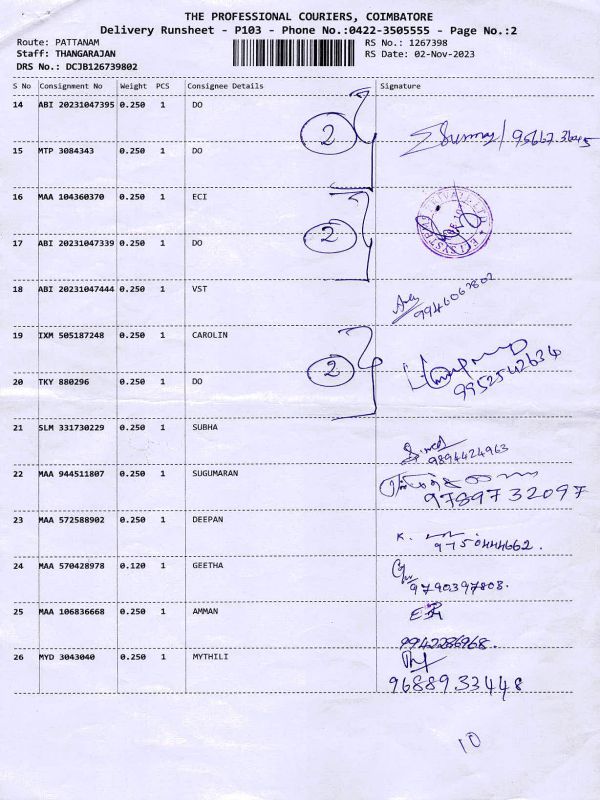 THE PROFESSIONAL COURIERS, COIMBATORE
Delivery Runsheet - P103 - Phone No.:0422-3505555 - Page No.:2
Route: PATTANAM RS No.: 1267398
Staff: THANGARAJAN RS Date: 02-Nov-2023
DRS No.: DCJB126739802
S No Consignment No Weight PCS Consignee Details Signature
14 ABI 20231047395 0.250 1 DO
2
15 MTP 3084343 0.250 1 DO
16 MAA 104360370 0.250 1 ECI
2
17 ABI 20231047339 0.250 1 DO
18 ABI 20231047444 0.250 1 VST
9946067802
19 IXM 505187248 0.250 1 CAROLIN
2 9952542634
20 TKY 880296 0.250 1 DO
21 SLM 331730229 0.250 1 SUBHA
9894424963
22 MAA 944511807 0.250 1 SUGUMARAN
9789732097
23 MAA 572588902 0.250 1 DEEPAN
K.
9750444662.
24 MAA 570428978 0.120 1 GEETHA
9790397808.
25 MAA 106836668 0.250 1 AMMAN
9942286968.
26 MYD 3043040 0.250 1 MYTHILI
9688933448
10